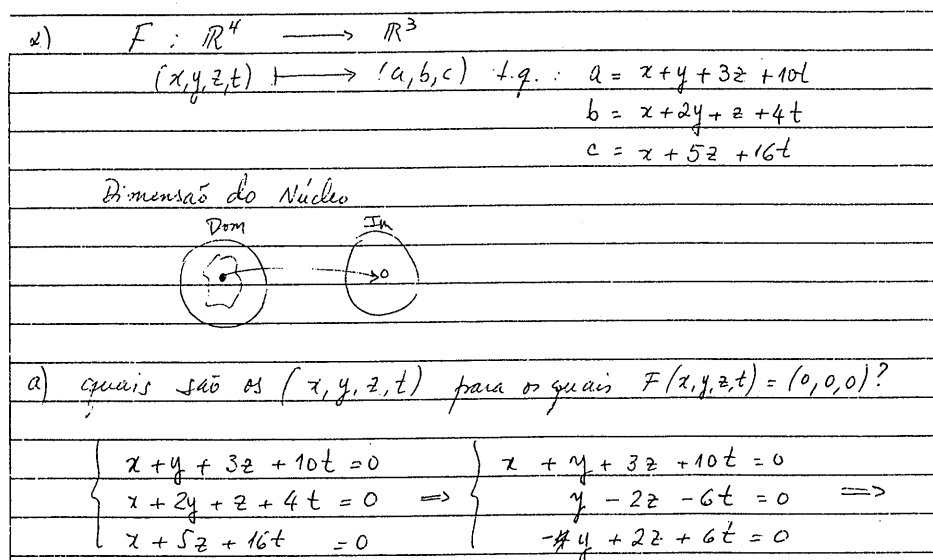 2) F : ℝ⁴ ⟶ ℝ³
(x,y,z,t) ⟼ (a,b,c) t.q. : a = x+y+3z+10t
b = x+2y+z+4t
c = x+5z+16t
Dimensão do Núcleo
Dom Im
0
a) quais são os (x,y,z,t) para os quais F(x,y,z,t) = (0,0,0)?
{ x+y+3z+10t = 0 { x+y+3z+10t = 0
x+2y+z+4t = 0 => y-2z-6t = 0 =>
x+5z+16t = 0 -y+2z+6t = 0